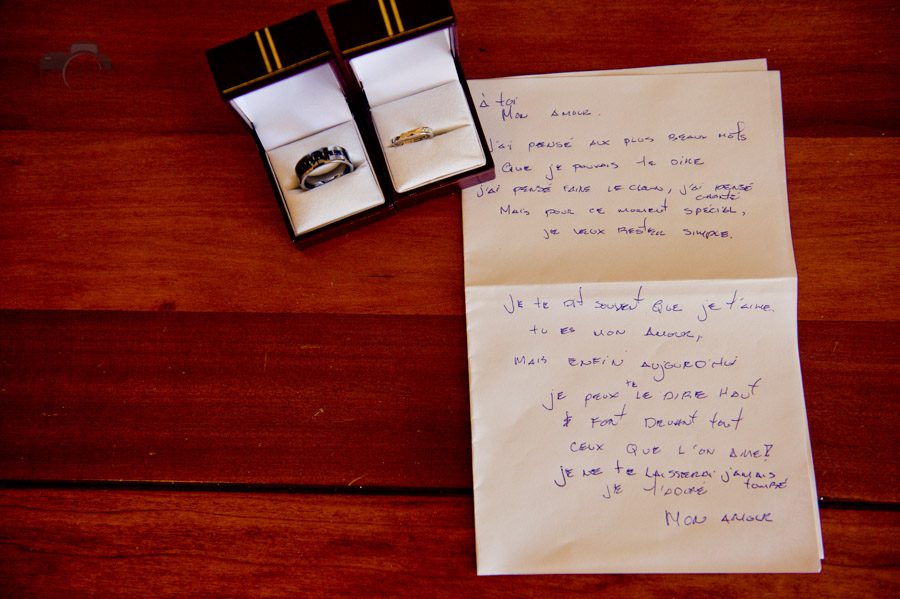 À toi
Mon amour.
J'ai pensé aux plus beaux mots
Que je pouvais te dire
J'ai pensé faire le clown, j'ai pensé
chanté
Mais pour ce moment spécial,
je veux rester simple.
Je te dit souvent que je t'aime.
tu es mon amour,
Mais enfin aujourd'hui
je peux te le dire haut
& fort devant tout
ceux que l'on aime!
je ne te laisserai jamais
tombé
je t'adore
Mon amour